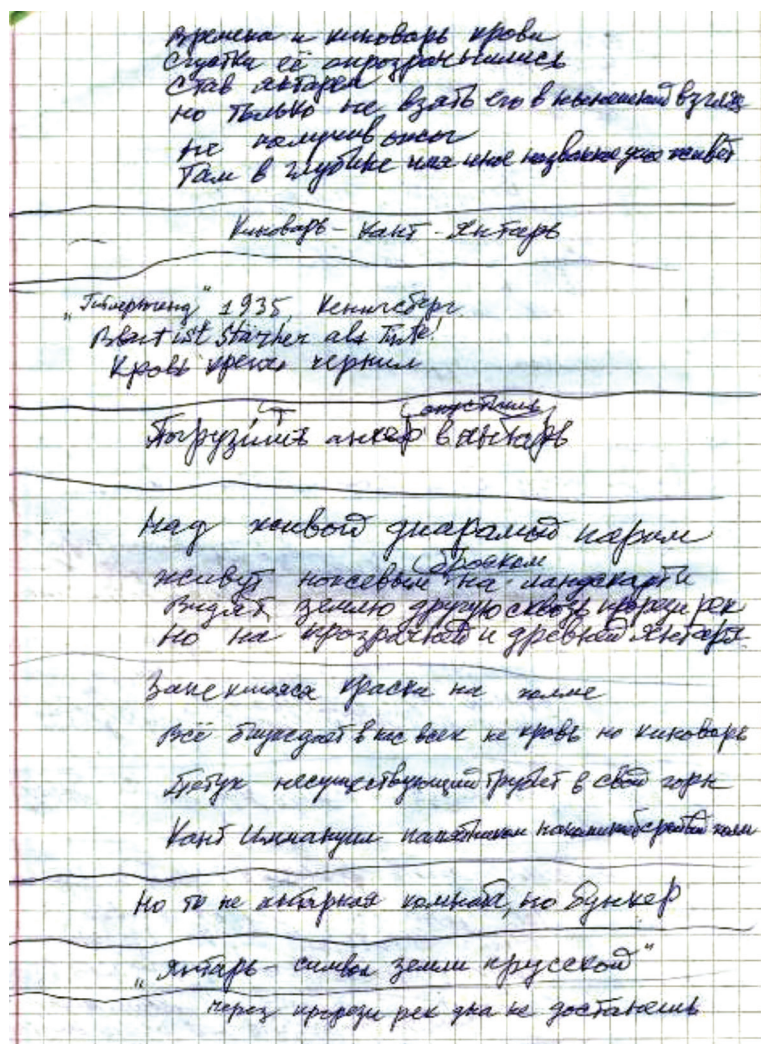 Времена и киноварь крови
Сгустки её опрозрачнились
Став янтарём
но только не взять его в нынешний взгляд
не получив
Там в глубине имя иное название уже живёт
Киноварь – Кант – Янтарь
" " 1935, Кенигсберг
Blut ist Stärker als Tinte!
Кровь крепче чернил
(опустишь)
Погрузишь анкер в янтарь
Над живой диарамой парим
(
живут на ландскарте
Видят землю другую сквозь прорези рек
но на прозрачной и древней Янтарь
Запекшаяся краска на холме
Всё блуждает в нас всех не кровь но киноварь
Петух несуществующий трубит в свой горн
Кант Иммануил памятником
Но то не янтарная комната, но бункер
"Янтарь – символ земли прусской"
через прорези рек дна не достанешь